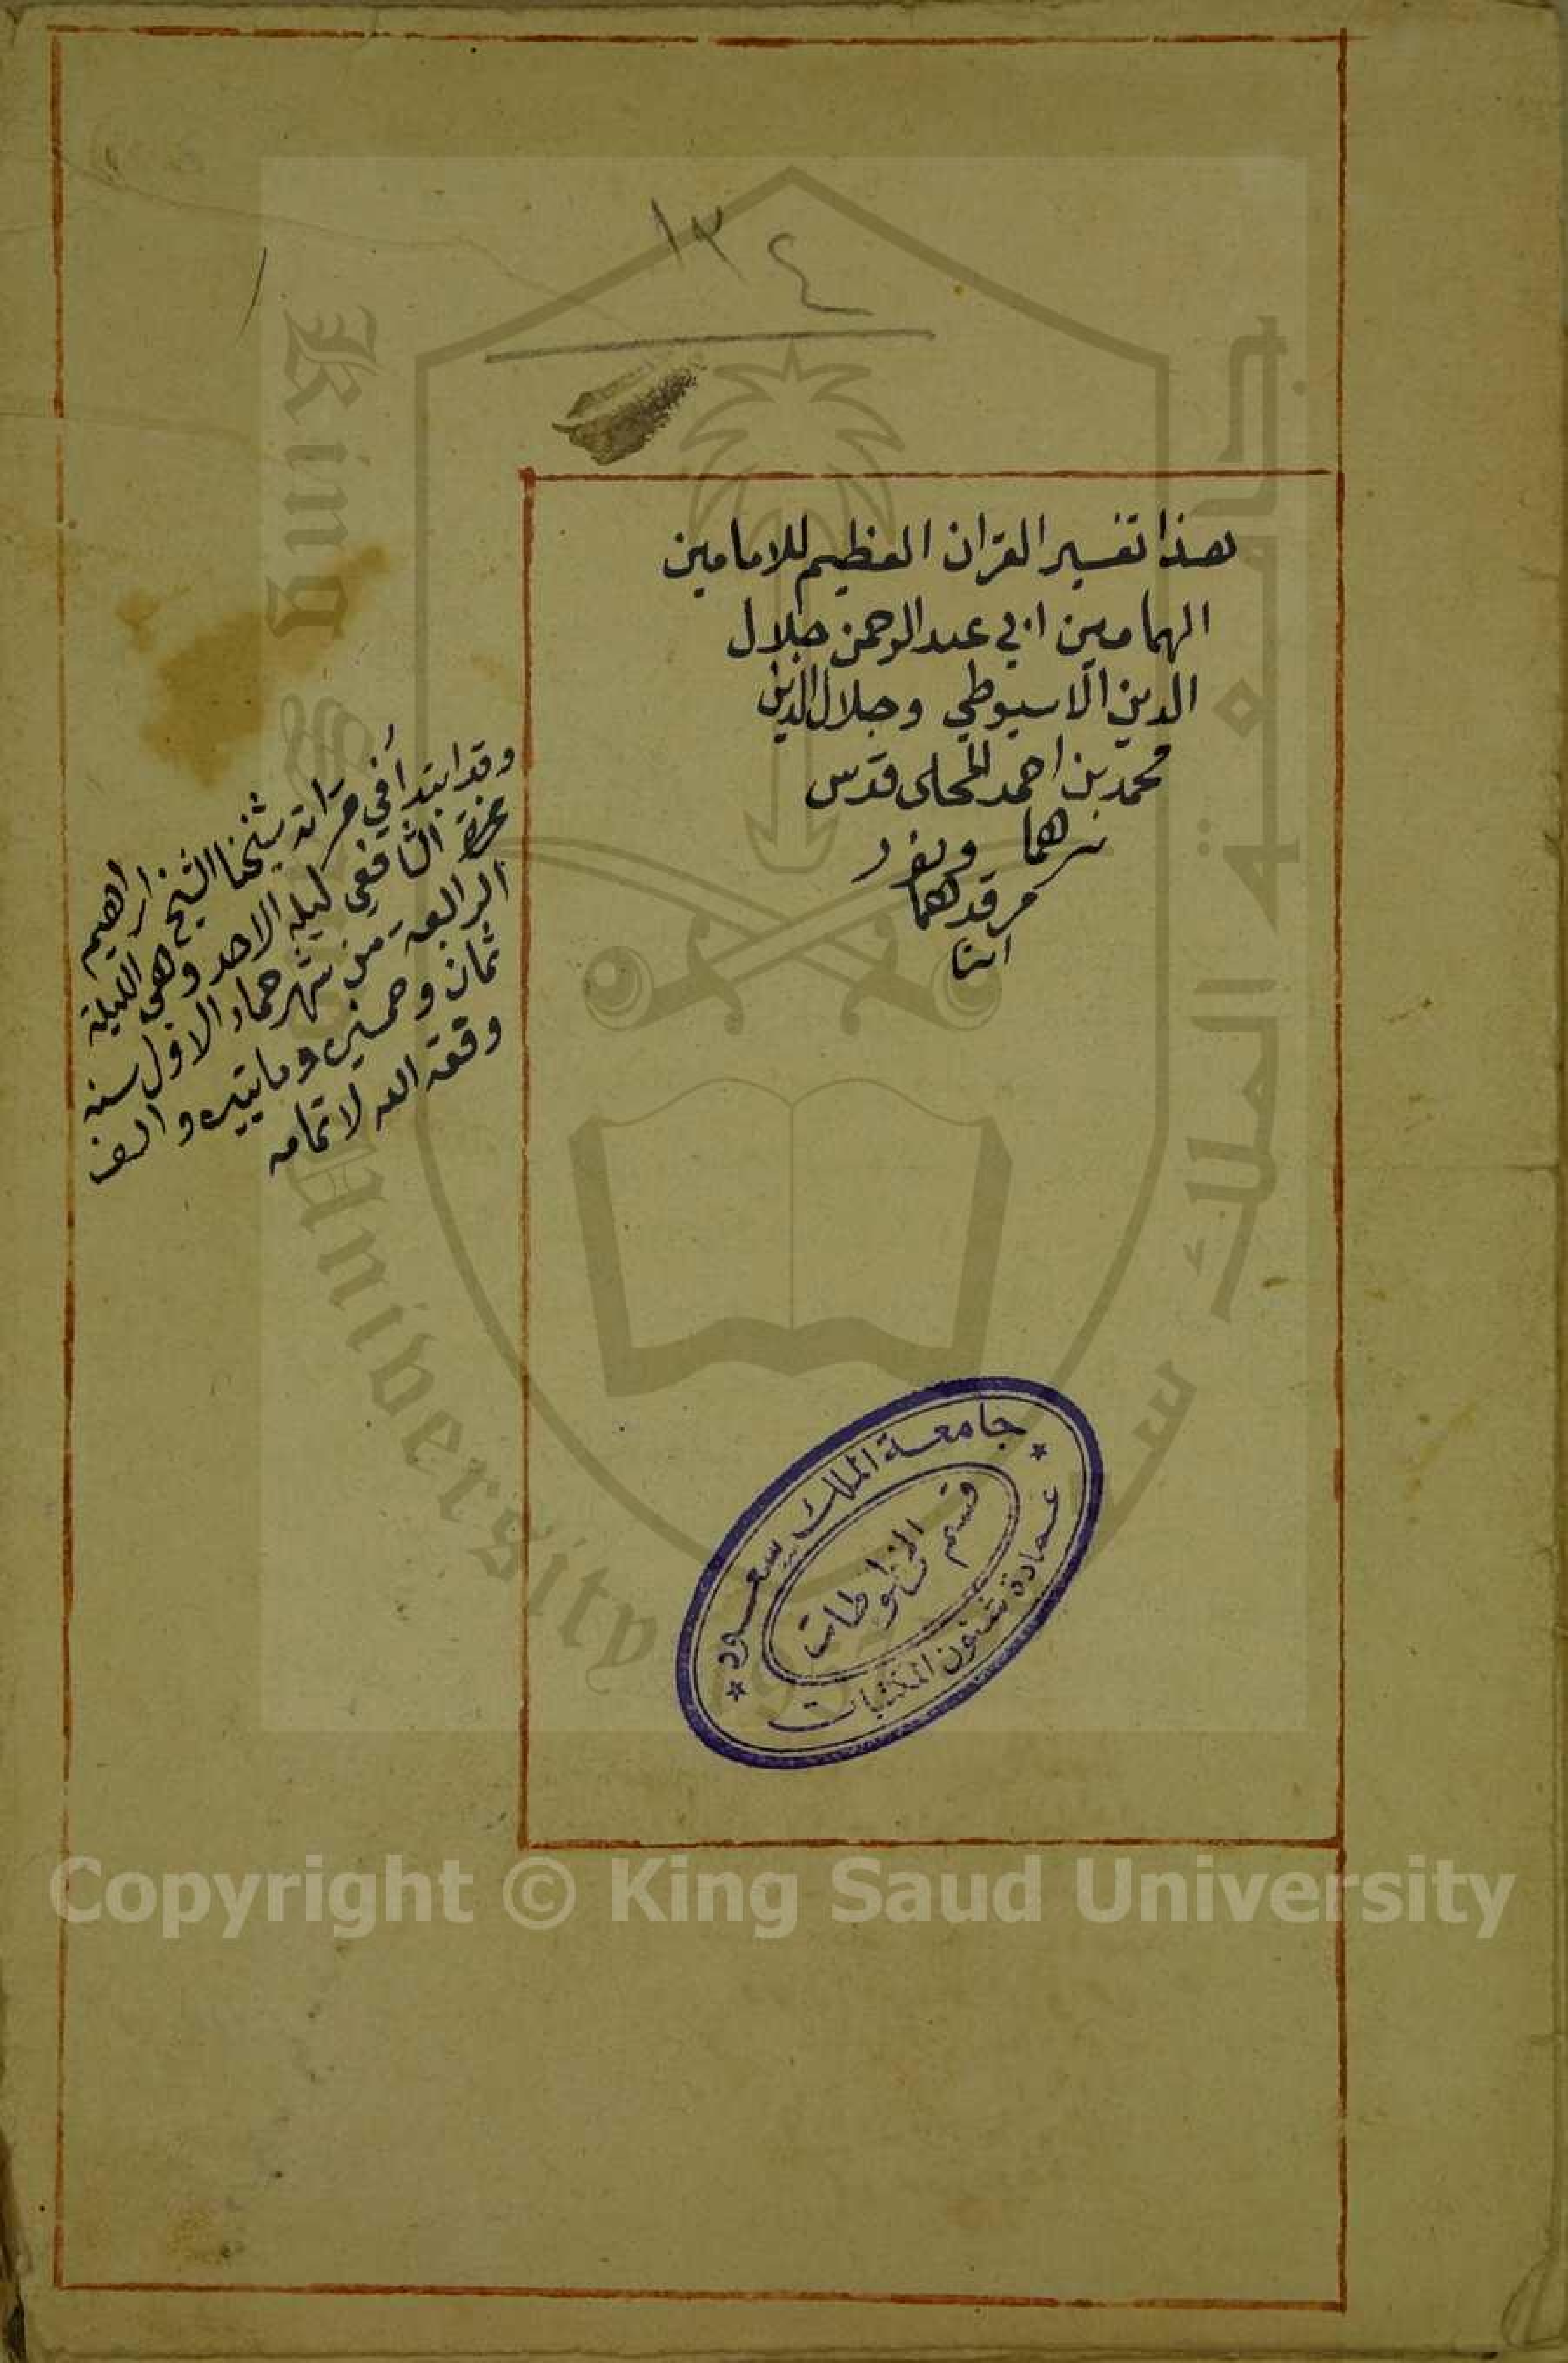 ١٣٤
هذا تفسير القران العظيم للامامين
الهمامين ابي عبد الرحمن جلال
الدين الاسيوطي وجلال الدين
محمد بن احمد المحلى قدس
سرهما ونور
مرقدهما
وقد ابتدأ في قراته شيخنا الشيخ ابراهيم
الشافعى ليلة الاحد وهى الليلة
الرابعة من شهر جماد الاول سنه
ثمان وخمسين وماتيين والف
وفقه الله لاتمامه
جامعة الملك سعود
قسم المخطوطات
عمادة شئون المكتبات
King Saud University
جامعة الملك سعود
Copyright © King Saud University